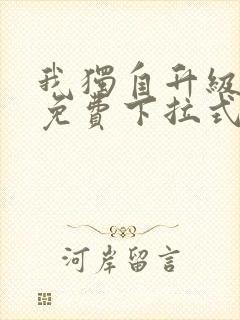 我獨自升級
免費下拉式
河岸留言